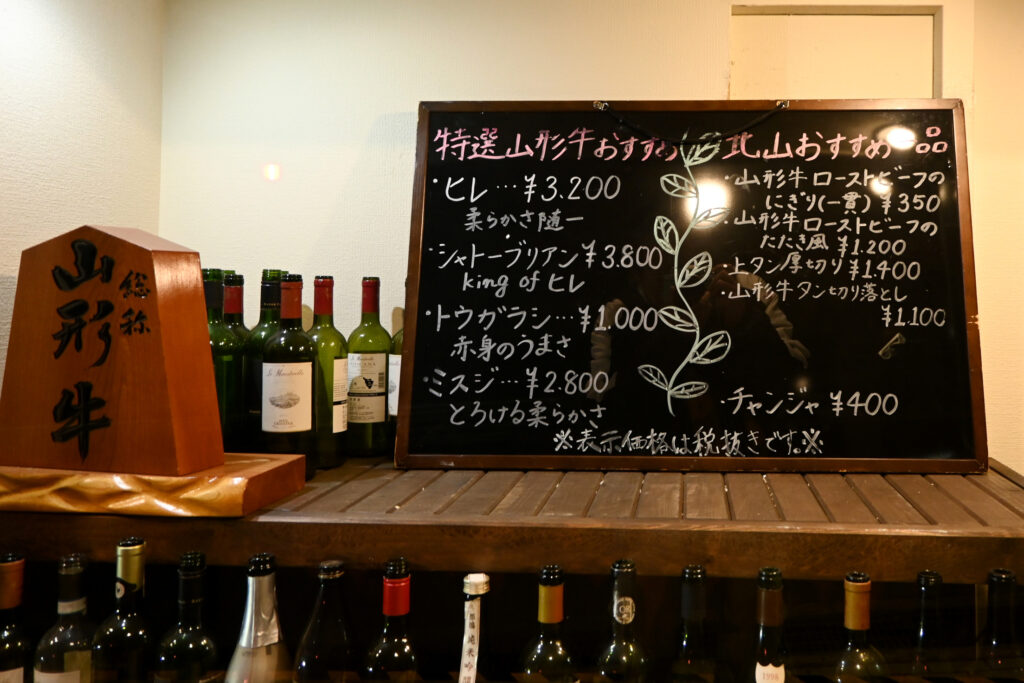 特選山形牛おすすめ
・ヒレ…¥3.200
柔らかさ随一
・シャトーブリアン¥3.800
king of ヒレ
・トウガラシ…¥1.000
赤身のうまさ
・ミスジ…¥2.800
とろける柔らかさ
北山おすすめ一品
・山形牛ローストビーフの
にぎり(一貫)¥350
・山形牛ローストビーフの
たたき風¥1.200
・上タン厚切り¥1.400
・山形牛タン切り落とし
¥1.100
・チャンジャ¥400
※表示価格は税抜きです。※
総称
山形牛
純米吟
OR
1998